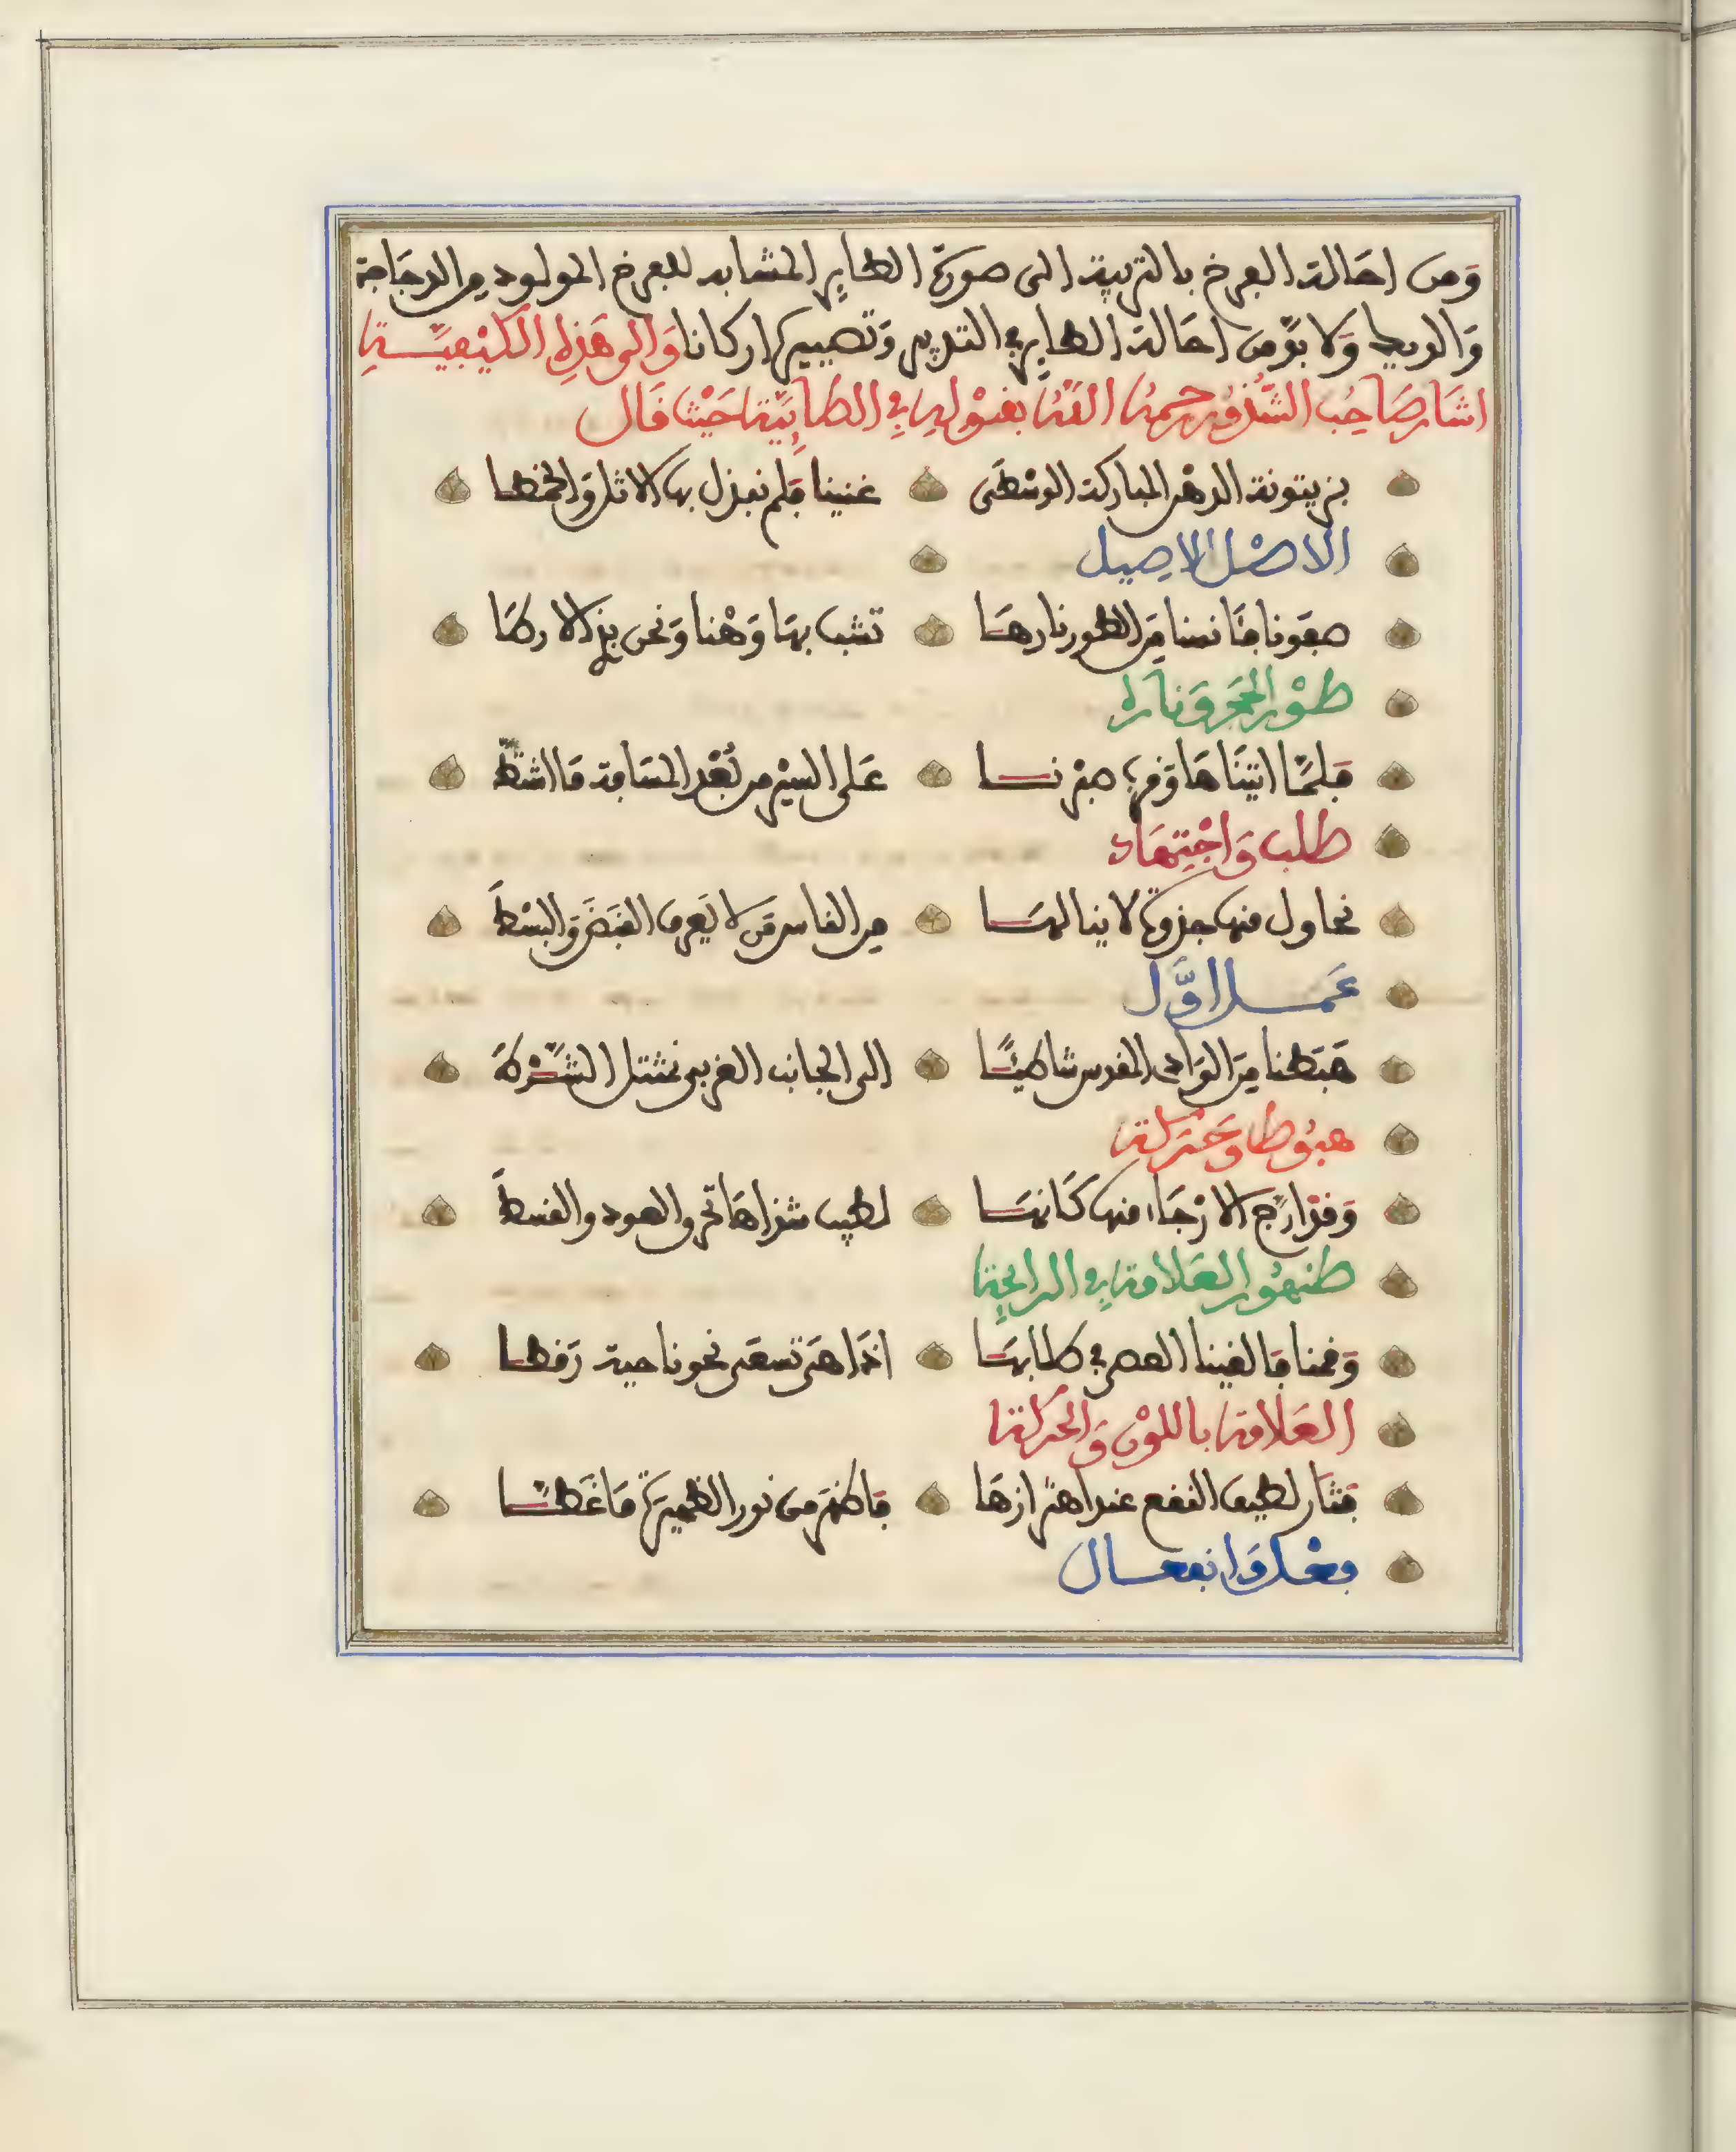 وَمن احَالة الفرخ بالتربية الى صورة الطاير المشابه للفرخ المولود من الدجَاجة
وَالديك وَلا بدّ من احَالة الطاير في التدبير وَتصييره اركانا وَالى هَذِه الكيْفيّة
اشَار صَاحِب الشُّذُور رحمهُ اللهُ بقوْلِهِ فِي الطائِيّة حَيْث قَال
بزيتونة الدهْن المباركة الوسْطَى غنينا فلم نبذل بها الاثل وَالخمطا
الاصْل الاصيل
صفَونا فآنسنا مِنَ الطور نارهَا تشب بهَا وَهْنا وَنحن بذي الارطَا
طوْر الحجَر وَنارُه
فلمَّا اتيْنَاهَا وَقرب صبْرنا عَلى السيْر من بُعْد المسَافة مَا اشتطَّ
طلب وَاجْتِهَاد
نحاول منها جذوة لا ينالهَا من الناس مَن لا يَعرف القبضَ وَالبسْطَا
عَمل اوَّل
هَبَطنا مِنَ الوَادي المقدس شاطيًا الى الجانب الغربي نمتثل الشَّرْطَا
هبُوط وَحَرَكة
وَقد ارّج الارْجَاء منها كَانهَا لطيب شذاهَا تحرق العود والقسطَا
ظهُور العَلامة فِي الرائحة
وَقمنا فالقينا العصى في طلابهَا اذا هيَ تسعَى نحونا حية رَقطا
العَلامة باللوْن وَالحَركة
فثَار لطيف النقع عند اهتزازهَا فاظهر من نور الظهيرة مَا غطّا
فعْل وَانفعال